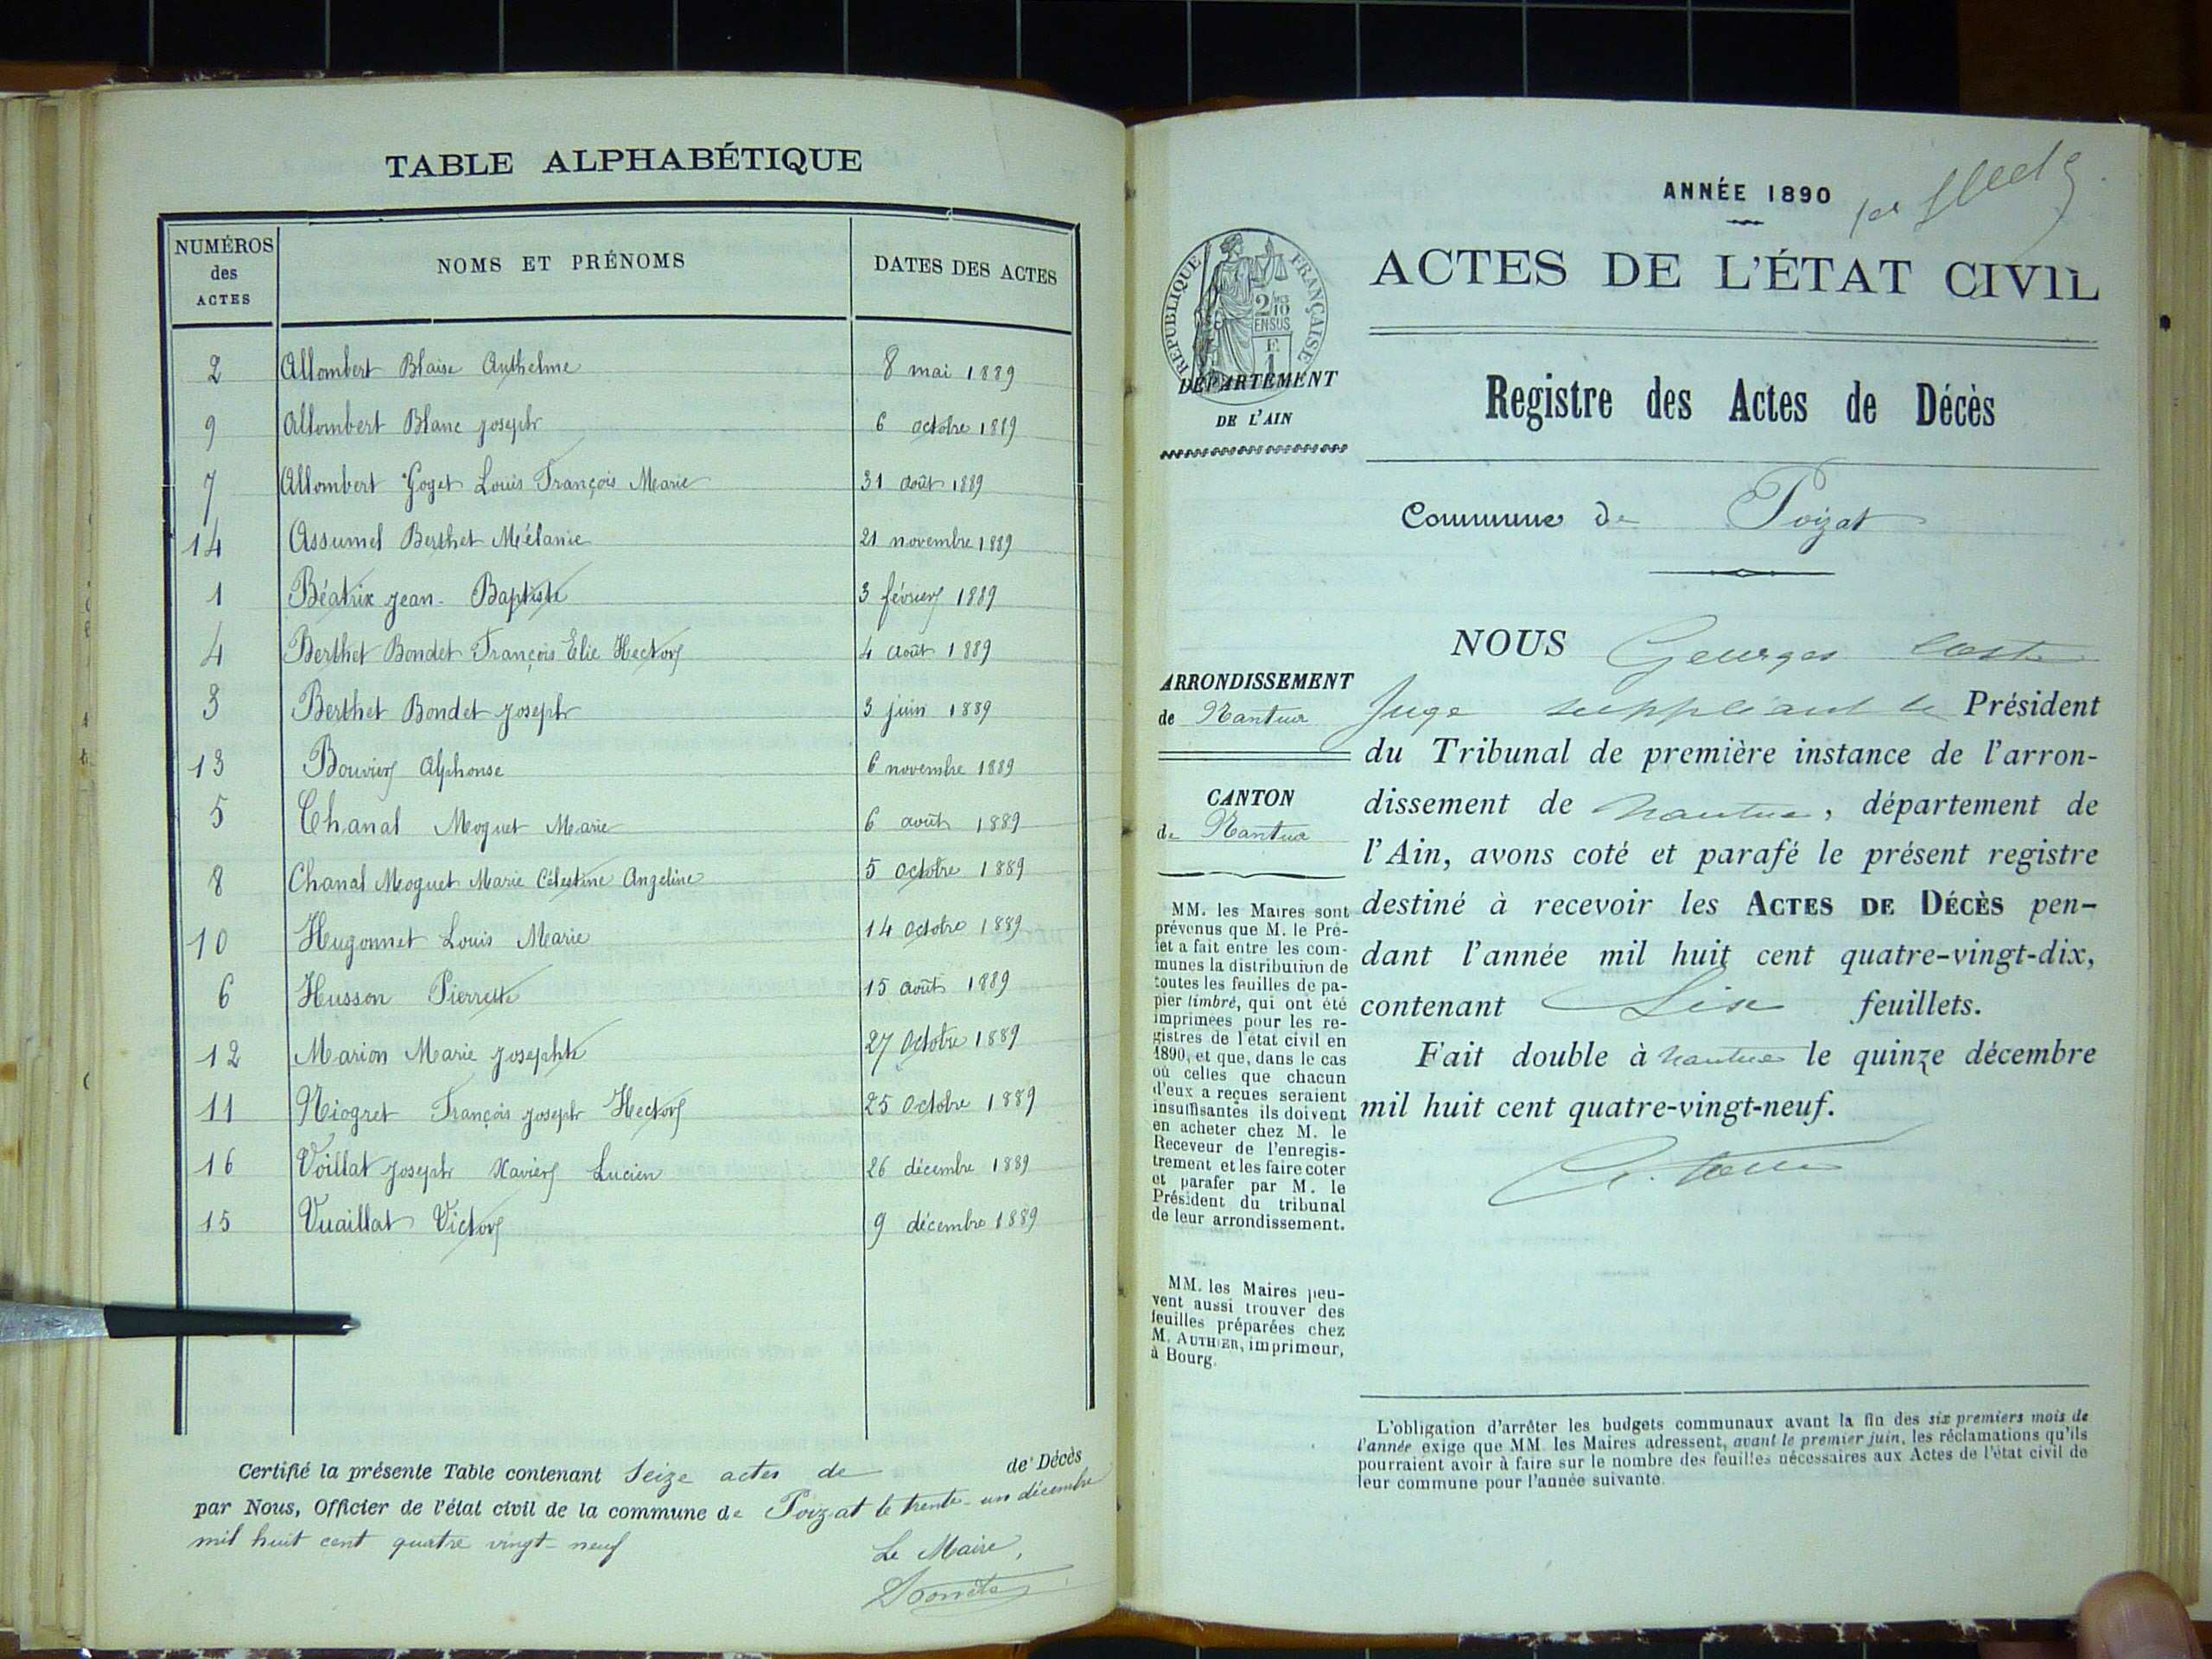 TABLE ALPHABÉTIQUE
NUMÉROS des ACTES | NOMS ET PRÉNOMS | DATES DES ACTES
2 Allombert Blaise Anthelme 8 mai 1889
9 Allombert Blanc joseph 6 octobre 1889
7 Allombert Goget Louis François Marie 31 août 1889
14 Assumel Berthet Mélanie 21 novembre 1889
1 Béatrix jean-Baptiste 3 février 1889
4 Berthet Bondet François Elie Hector 4 août 1889
3 Berthet Bondet joseph 3 juin 1889
13 Bouvier Alphonse 6 novembre 1889
5 Chanal Moguet Marie 6 août 1889
8 Chanal Moguet Marie Célestine Angeline 5 Octobre 1889
10 Hugonnet Louis Marie 14 Octobre 1889
6 Husson Pierrette 15 août 1889
12 Marion Marie josephte 27 Octobre 1889
11 Niogret François joseph Hector 25 Octobre 1889
16 Voillat joseph Xavier Lucien 26 décembre 1889
15 Vuaillat Victor 9 décembre 1889
Certifié la présente Table contenant Seize actes de de Décès
par Nous, Officier de l'état civil de la commune de Poizat le trente-un décembre
mil huit cent quatre vingt-neuf
Le Maire,
ANNÉE 1890
RÉPUBLIQUE FRANÇAISE
2/10 EN SUS
ACTES DE L'ÉTAT CIVIL
DÉPARTEMENT
DE L'AIN
Registre des Actes de Décès
Commune de Poizat
ARRONDISSEMENT
de Nantua
CANTON
de Nantua
MM. les Maires sont
prévenus que M. le Pré-
fet a fait entre les com-
munes la distribution de
toutes les feuilles de pa-
pier timbré, qui ont été
imprimées pour les re-
gistres de l'état civil en
1890, et que, dans le cas
où celles que chacun
d'eux a reçues seraient
insuffisantes ils doivent
en acheter chez M. le
Receveur de l'enregis-
trement et les faire coter
et parafer par M. le
Président du tribunal
de leur arrondissement.
MM. les Maires peu-
vent aussi trouver des
feuilles préparées chez
M. AUTHIER, imprimeur,
à Bourg.
NOUS Georges Coste
Juge suppléant le Président
du Tribunal de première instance de l'arron-
dissement de Nantua, département de
l'Ain, avons coté et parafé le présent registre
destiné à recevoir les ACTES DE DÉCÈS pen-
dant l'année mil huit cent quatre-vingt-dix,
contenant Six feuillets.
Fait double à Nantua le quinze décembre
mil huit cent quatre-vingt-neuf.
G. Coste
L'obligation d'arrêter les budgets communaux avant la fin des six premiers mois de
l'année exige que MM. les Maires adressent, avant le premier juin, les réclamations qu'ils
pourraient avoir à faire sur le nombre des feuilles nécessaires aux Actes de l'état civil de
leur commune pour l'année suivante.